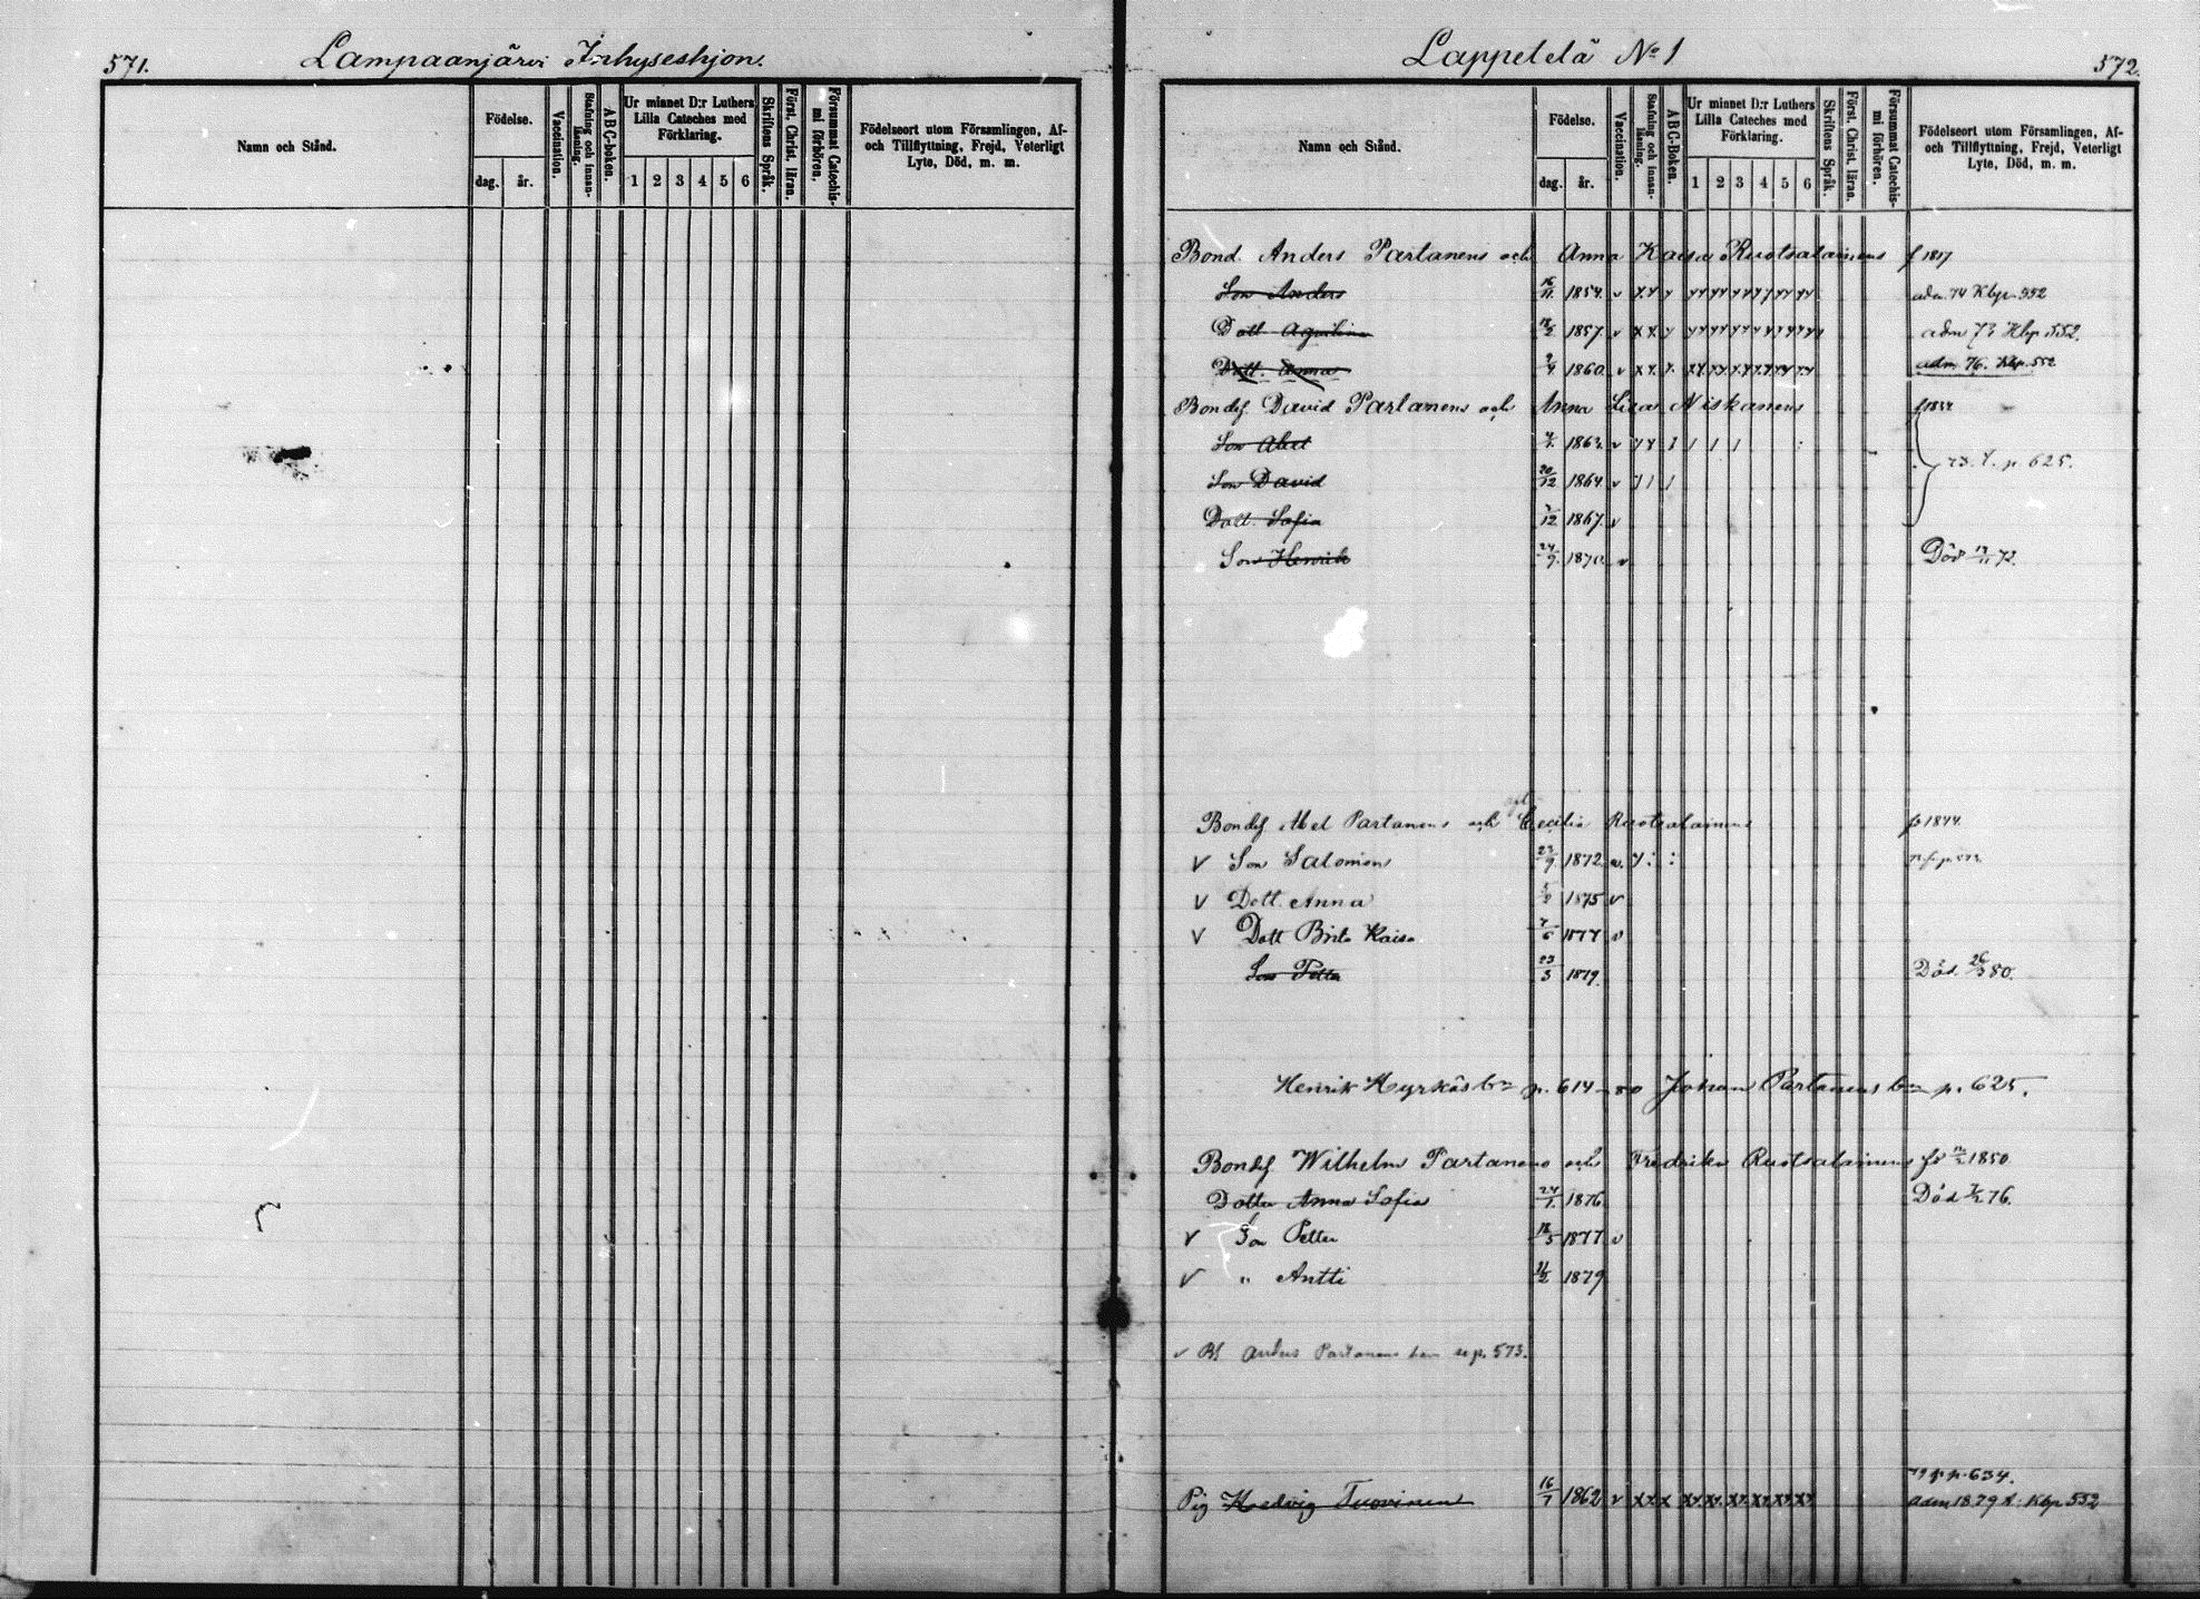 571.
Lampaanjärvi Inhyseshjon.
Namn och Stånd.
Födelse.
dag.
år.
Vaccination.
Stafning och innan-läsning.
ABC-boken.
Ur minnet D:r Luthers Lilla Cateches med Förklaring.
1 2 3 4 5 6
Skriftens Språk.
Först. Christ. läran.
Försummat Catechis-mi förhören.
Födelseort utom Församlingen, Af- och Tillflyttning, Frejd, Veterligt Lyte, Död, m. m.
Lappetelä No 1
572.
Namn och Stånd.
Födelse.
dag.
år.
Vaccination.
Stafning och innan-läsning.
ABC-Boken.
Ur minnet D:r Luthers Lilla Cateches med Förklaring.
1 2 3 4 5 6
Skriftens Språk.
Först. Christ. läran.
Försummat Catechis-mi förhören.
Födelseort utom Församlingen, Af- och Tillflyttning, Frejd, Veterligt Lyte, Död, m. m.
Bond. Anders Partanens och Anna Kaisa Ruotsalainens f 1817
Son Anders 16/11 1854. v adm. 74 Kbp. 552
Dott Aqvilina 18/2 1857. v adm 73 Kbp 552.
Dott. Anna 9/4 1860. v adm 76. Kbp. 552
Bondes. David Partanens och Anna Lisa Niskanens
Son Abel 1863. v
Son David 20/12 1864. v p. 625.
Dott. Sofia 1867. v
Son Henrik 24/9 1870. v Död 13/11 72.
Bondes Abel Partanens och Cecilia Ruotsalainens fö 1844.
v Son Salomon 23/9 1872. v.
v Dott. Anna 1875 v
v Dott Brita Kaisa 7/6 1877 v
Son Petter 23/3 1879. Död. 26/3 80.
Henrik Hyrkäs bn p. 614 - 80 Johan Partanens bn p. 625.
Bondes Wilhelm Partanens och Fredrika Ruotsalainens fö 1850.
Dotter Anna Sofia 24/1 1876 Död 7/2 76.
v Son Petter 18/5 1877 v
v " Antti 1879
v Bs Anders Partanens barn se p. 573.
79 p. 634.
Pig Hedvig Tuovinen 16/7 1862 v adm 1879 A. Kbp 552